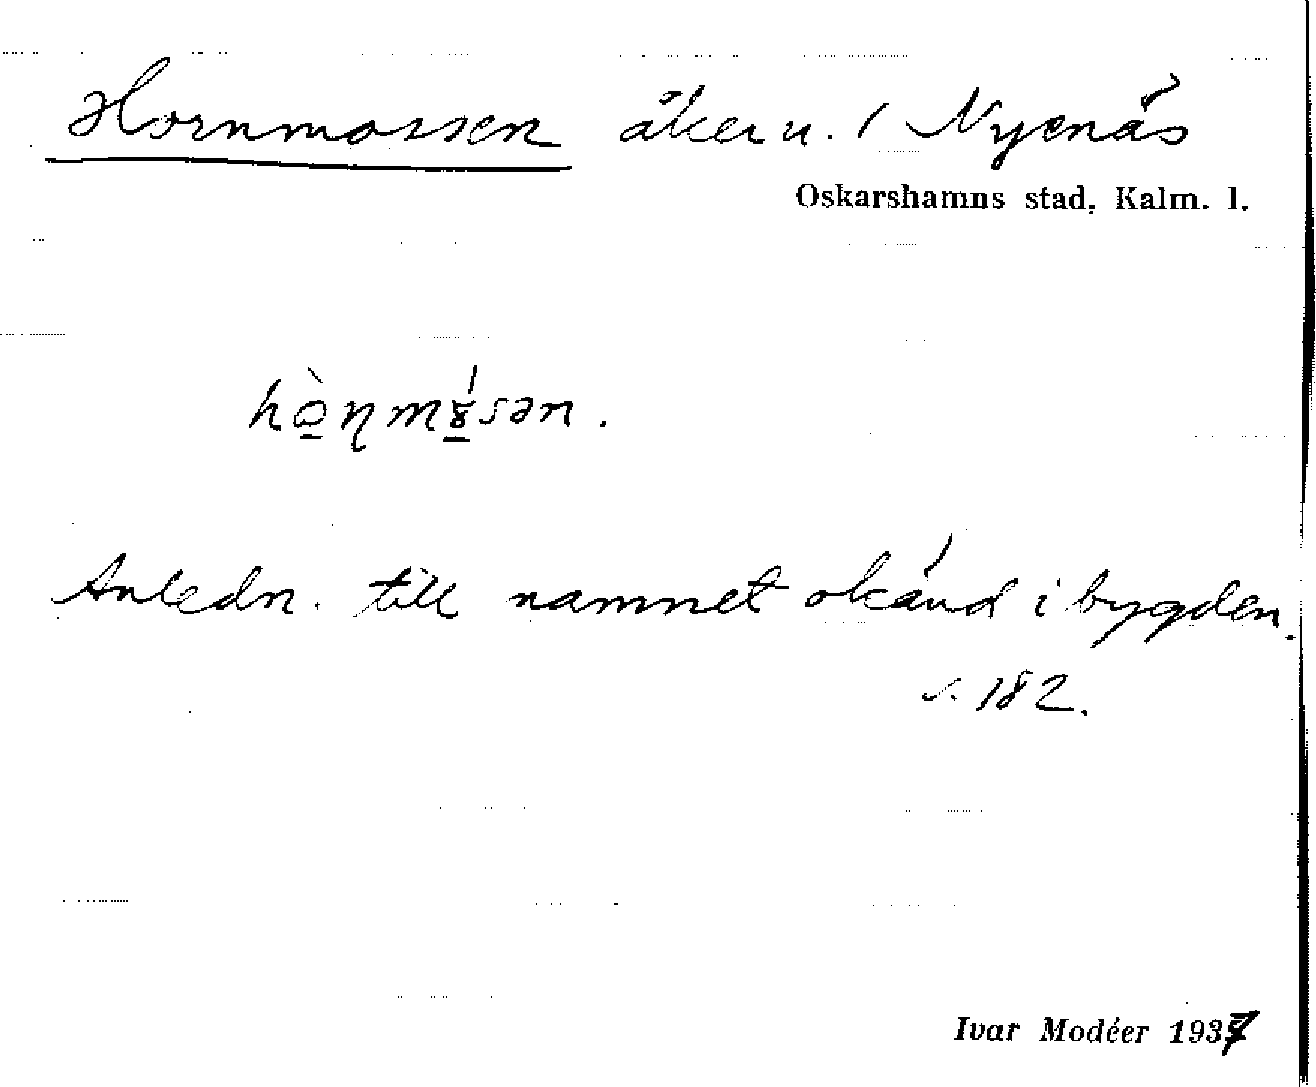 Hornmossen åker u. 1 Nyenäs
Oskarshamns stad, Kalm. l.
Anledn. till namnet okänd i bygden.
s. 182.
Ivar Modéer 1937